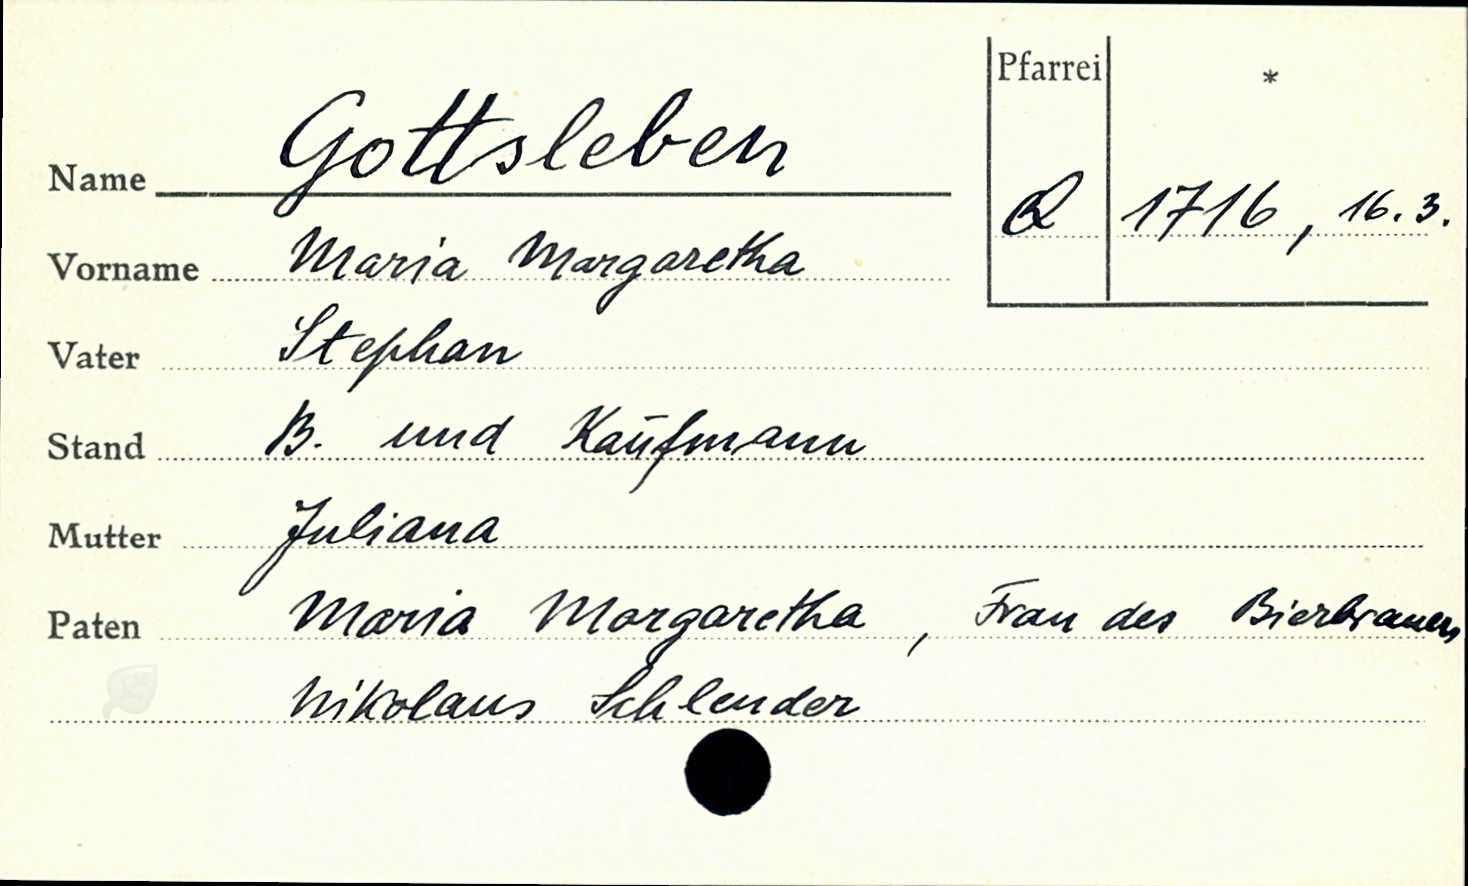 Pfarrei *
Name Gottsleben
Q 1716, 16. 3.
Vorname Maria Margaretha
Vater Stephan
Stand B. und Kaufmann
Mutter Juliana
Paten Maria Margaretha, Frau des Bierbrauers
Nikolaus Schlender